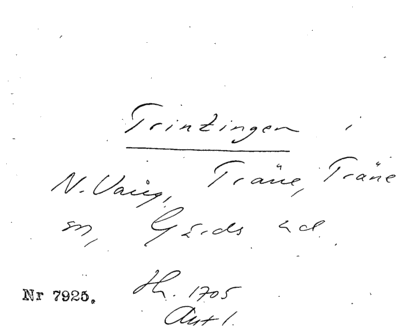 Trintingen i
N. Vång, Träne, Träne
sn, Gärds hd.
Nr 7925. Hn. 1705
Akt 1.